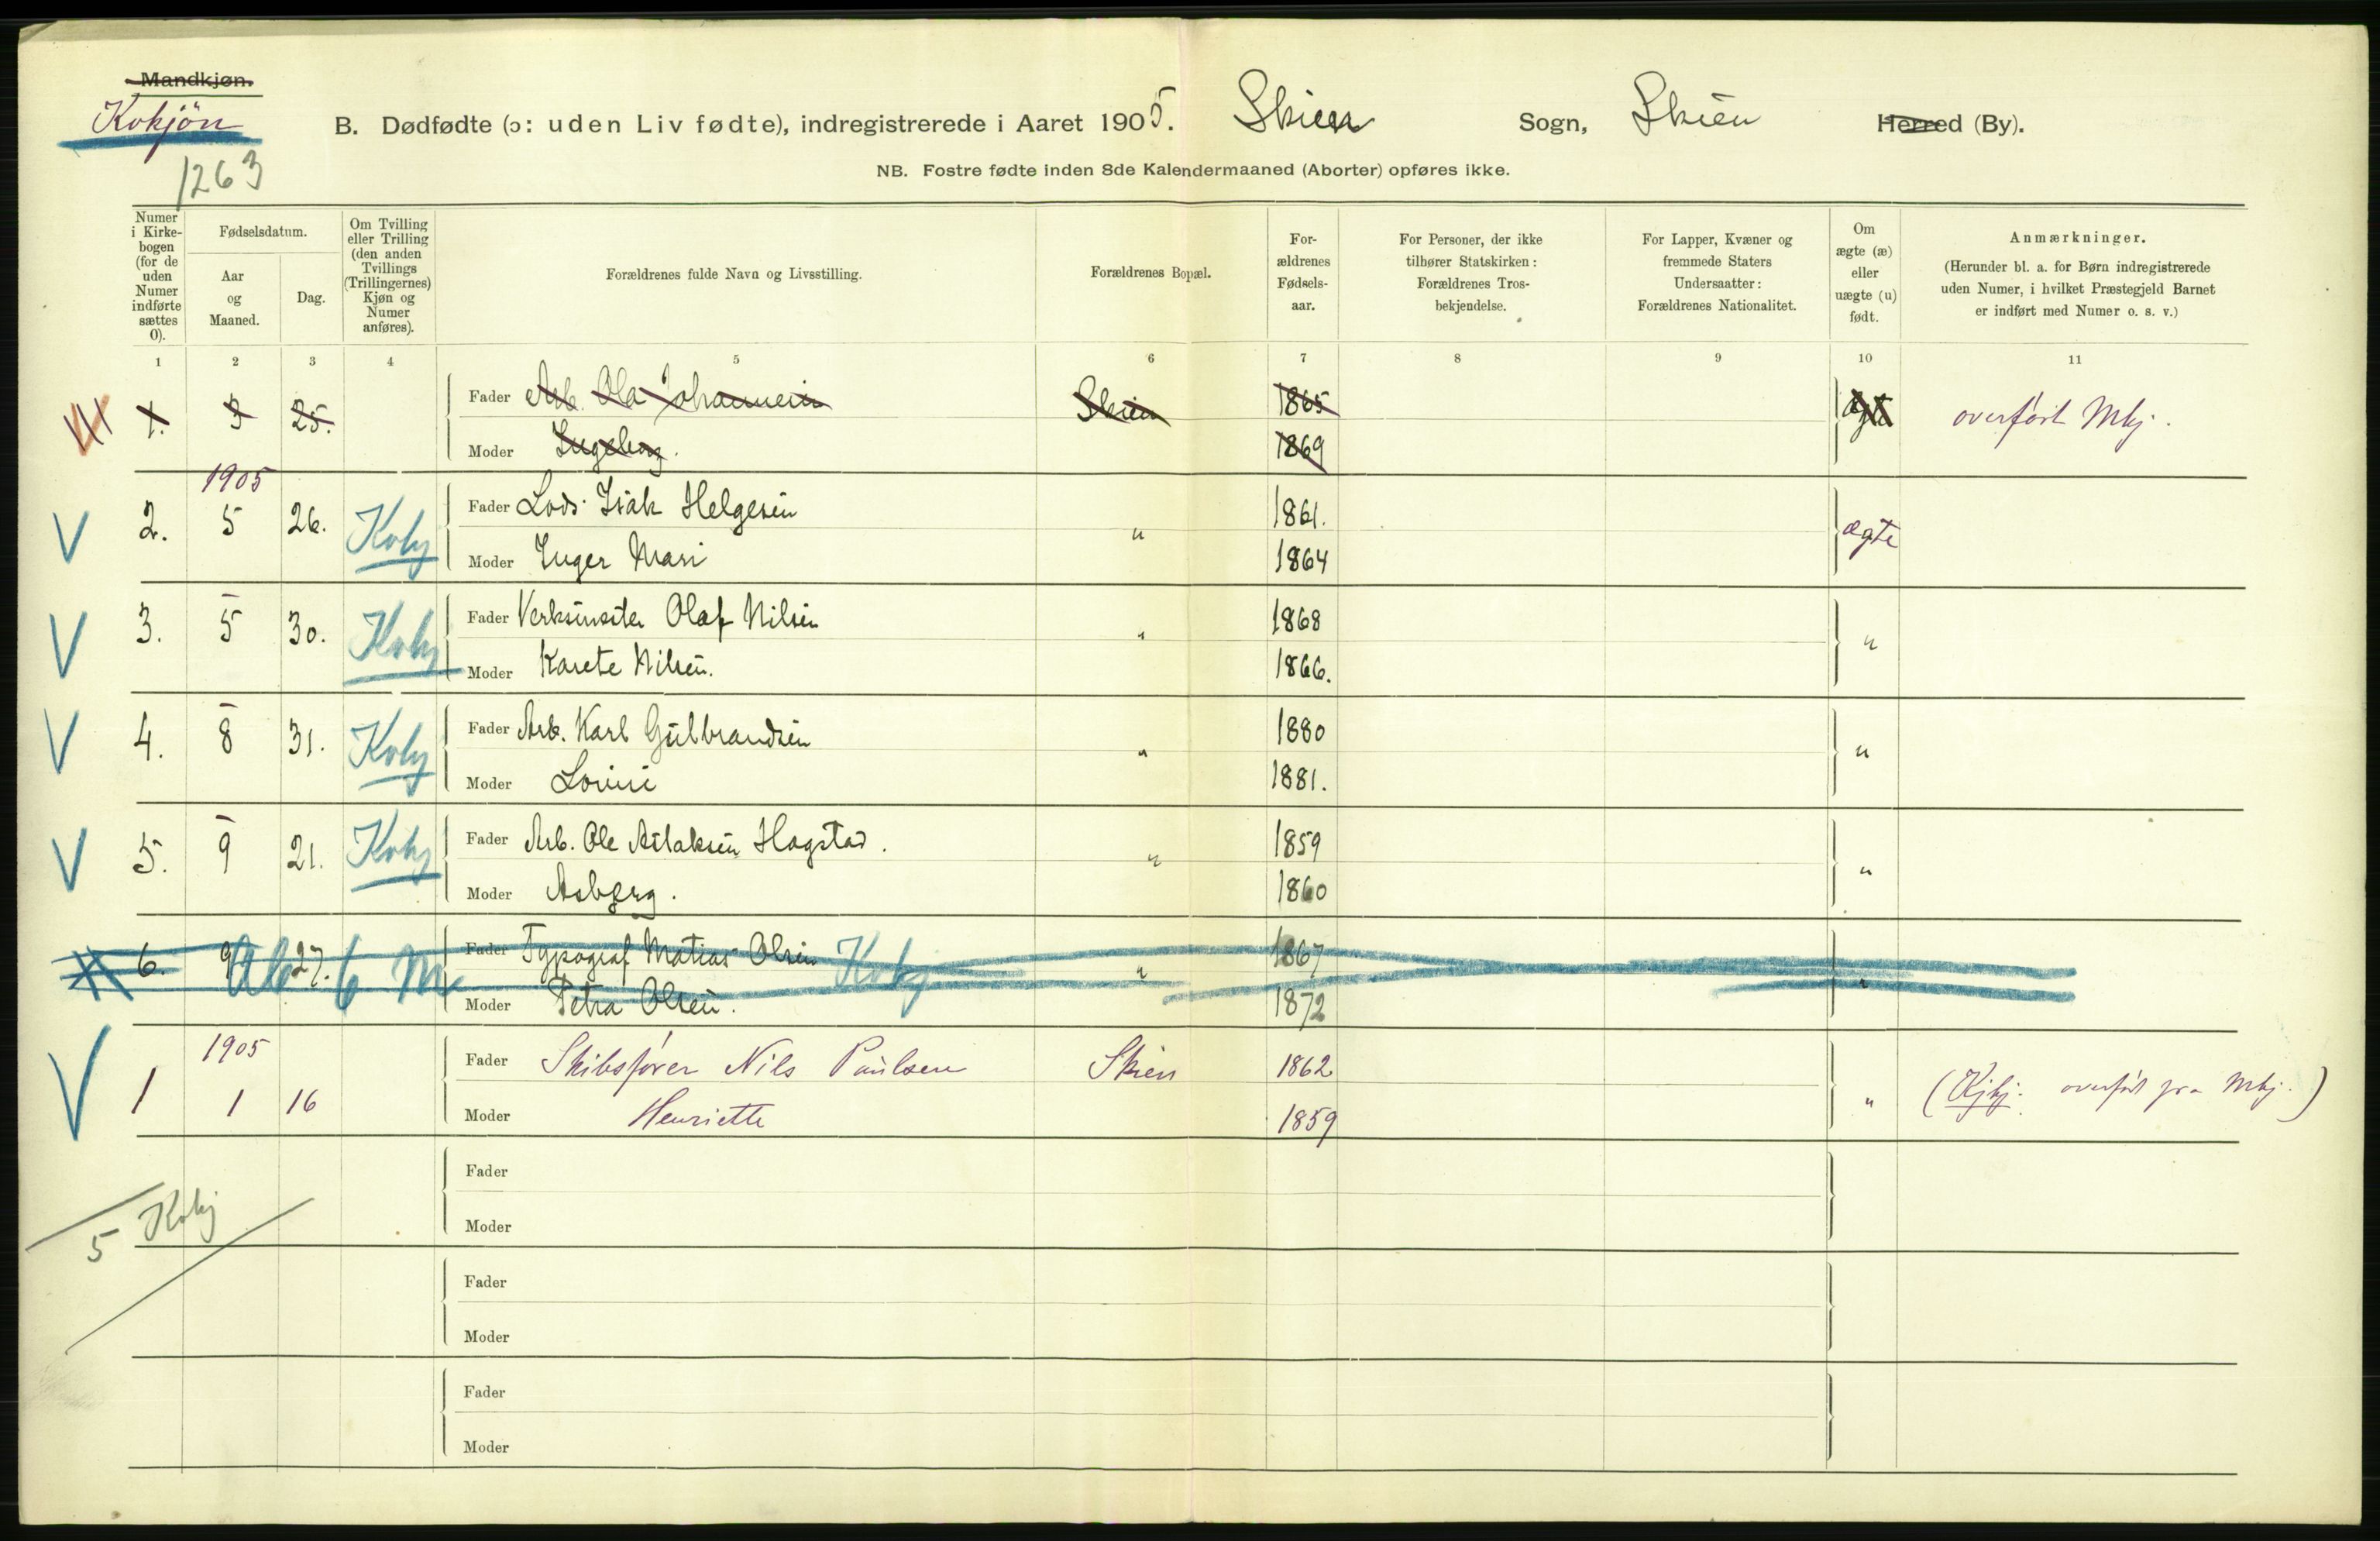 Mandkjøn.
Kvkjön
1263
B. Dødfødte (ɔ: uden Liv fødte), indregistrerede i Aaret 1905. Skien Sogn, Skien Herred (By).
NB. Fostre fødte inden 8de Kalendermaaned (Aborter) opføres ikke.
Numer i Kirkebogen (for de uden Numer indførte sættes 0).
Fødselsdatum.
Aar og Maaned.
Dag.
Om Tvilling eller Trilling (den anden Tvillings (Trillingernes) Kjøn og Numer anføres).
Forældrenes fulde Navn og Livsstilling.
Forældrenes Bopæl.
Forældrenes Fødselsaar.
For Personer, der ikke tilhører Statskirken: Forældrenes Trosbekjendelse.
For Lapper, Kvæner og fremmede Staters Undersaatter: Forældrenes Nationalitet.
Om ægte (æ) eller uægte (u) født.
Anmærkninger.
(Herunder bl. a. for Børn indregistrerede uden Numer, i hvilket Præstegjeld Barnet er indført med Numer o. s. v.)
1 2 3 4 5 6 7 8 9 10 11
1. 3 25. Fader Arb. Ola Johannesen Skien 1865 ægte overført Mkj.
Moder Ingeborg. 1869
1905
2. 5 26. Kvkj Fader Lods Isak Helgesen " 1861. ægte
Moder Inger Mari 1864
3. 5 30. Kvkj Fader Verksmester Olaf Nilsen " 1868 "
Moder Karete Nilsen. 1866.
4. 8 31. Kvkj Fader Arb. Karl Gulbrandsen " 1880 "
Moder Lovise 1881.
5. 9 21. Kvkj Fader Arb. Ole Aslaksen Hogstad. " 1859 "
Moder Asbjørg. 1860
6. 9 27. Fader Typograf Matias Olsen Kvkj " 1867 "
Moder Petra Olsen. 1872
1905
1 1 16 Fader Skibsfører Nils Paulsen Skien 1862 " (Kjkj. overført fra Mkj.)
Moder Henriette 1859
Fader
Moder
5 Kvkj
Fader
Moder
Fader
Moder